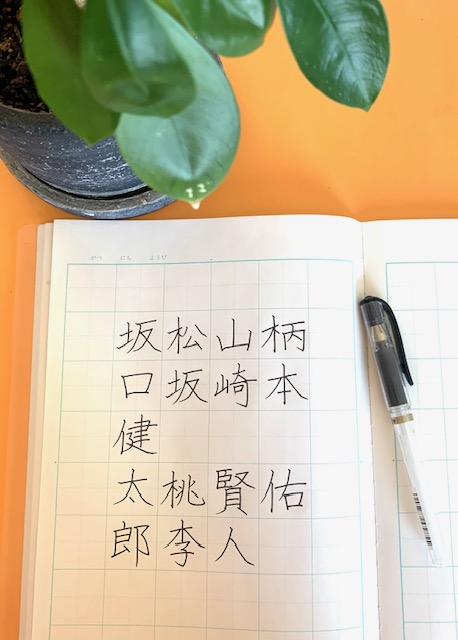 がつ にち ようび
柄本佑
山崎賢人
松坂桃李
坂口健太郎